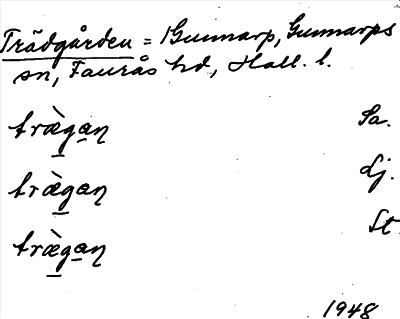 Trädgården = Gunnarp, Gunnarps
sn, Faurås hd, Hall. l.
træ̀gaɳ Sa.
træ̀gaɳ Lj.
træ̀gaɳ St
1948